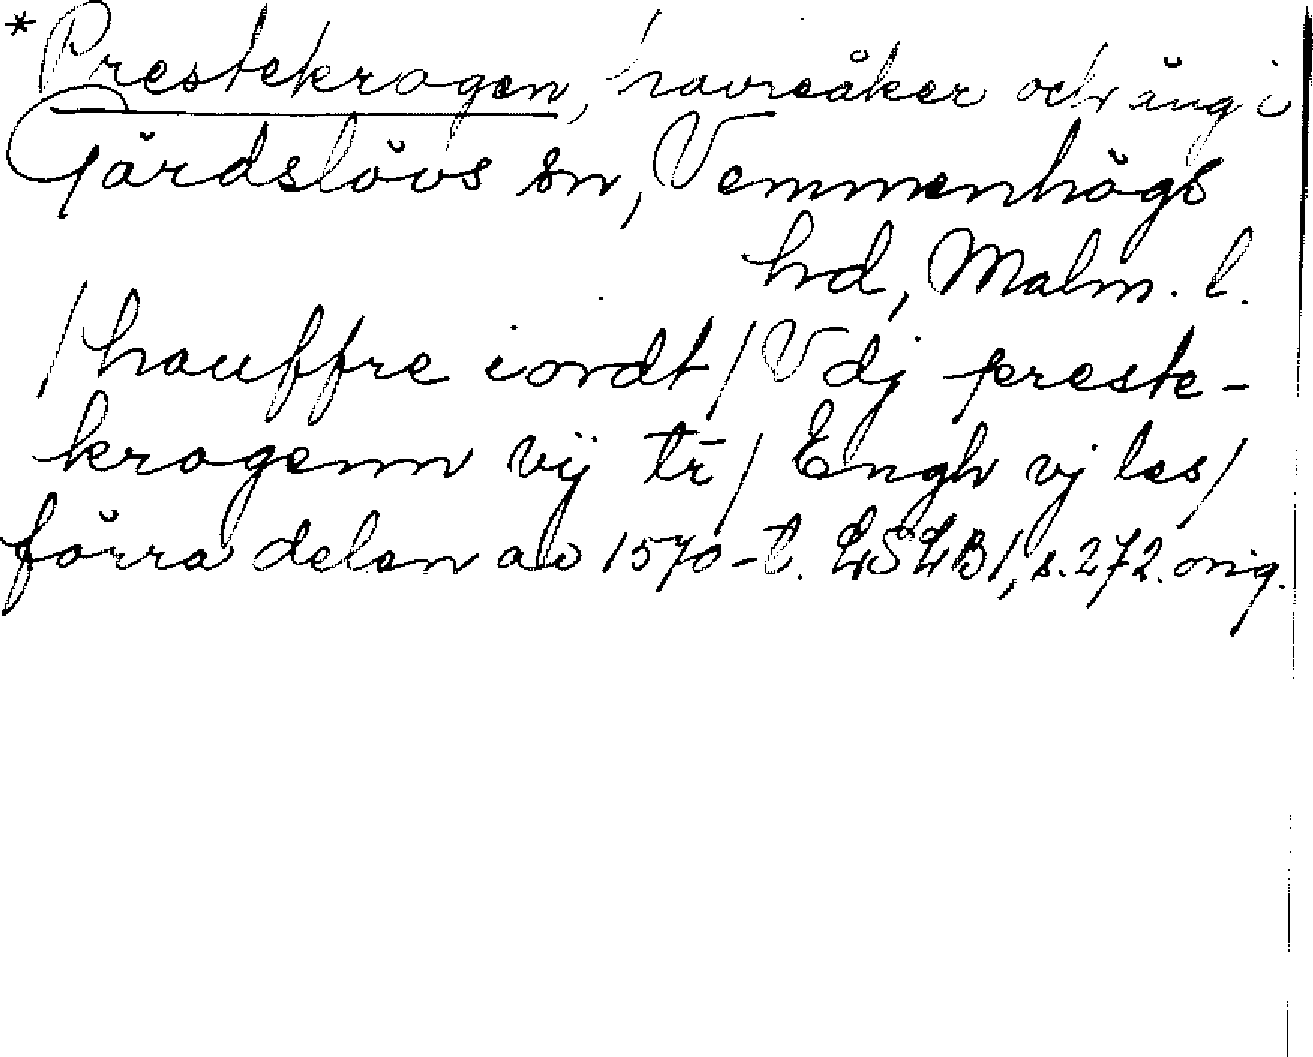 *Prestekrogen, havreåker och äng i
Gärdslövs sn, Vemmenhögs
hd, Malm. l.
/hauffre iordt/ Vdj preste-
krogenn vij tr̄/ Engh vj les/
förra delen av 1570-t. LSLB1, s. 272. orig.